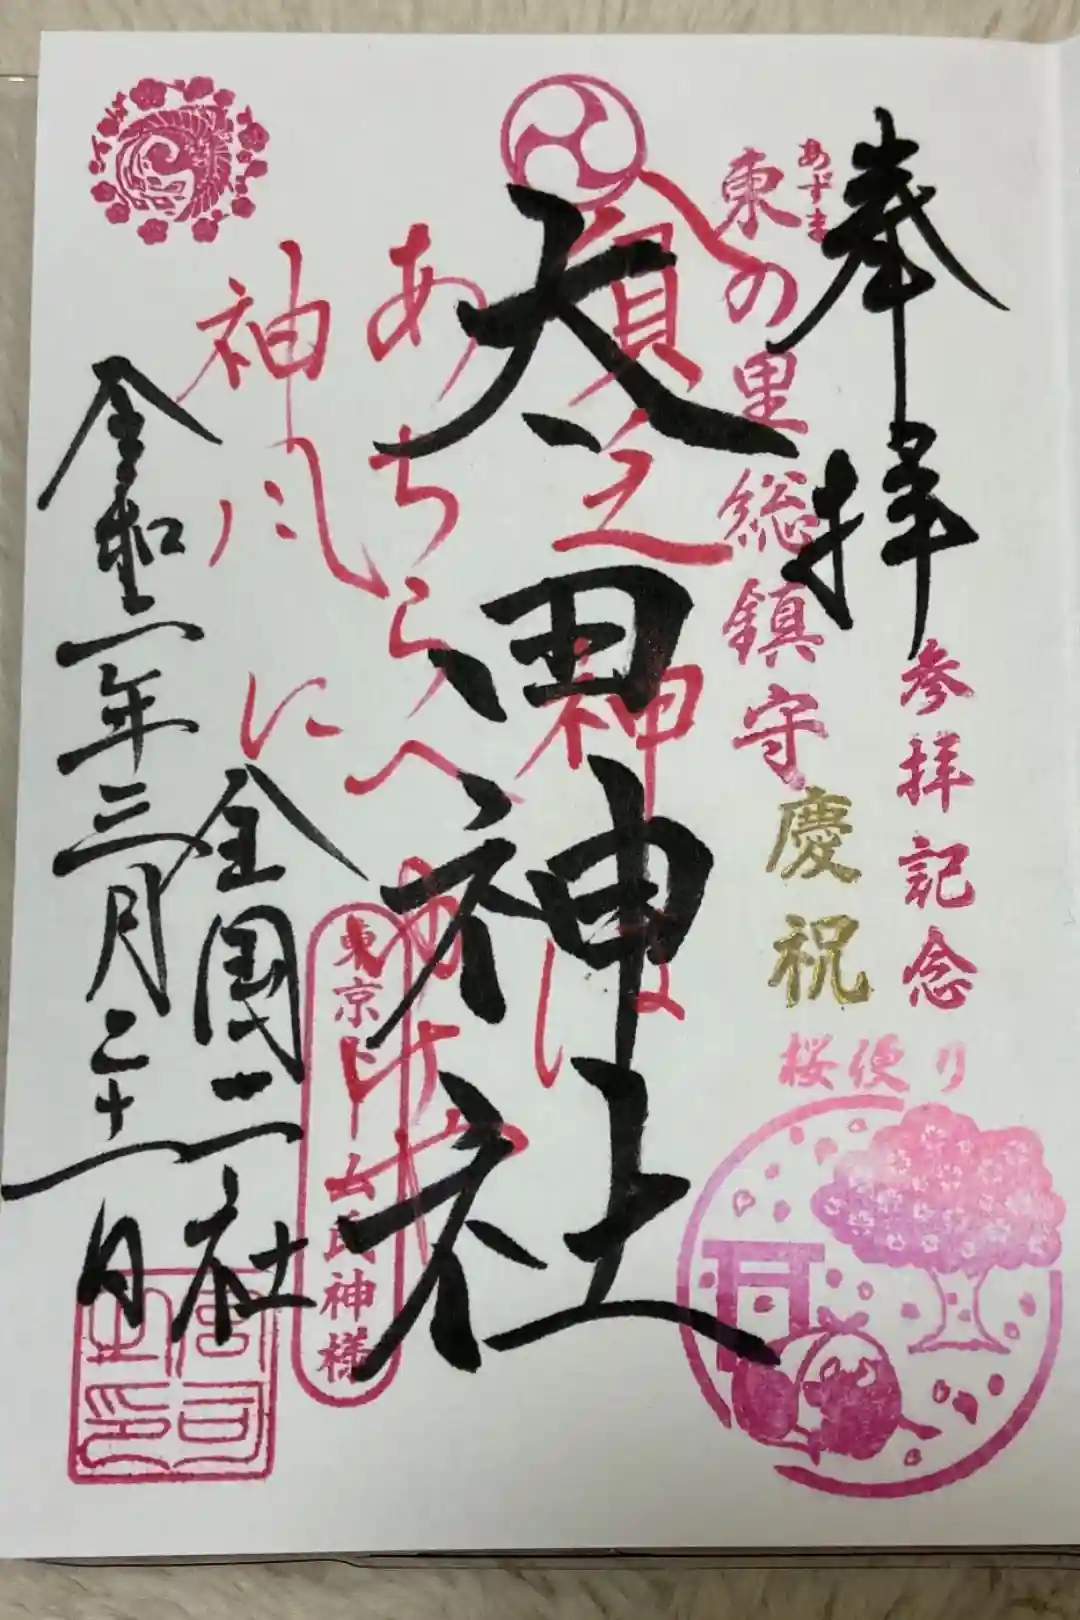 奉拝
参拝記念
あずま
東の里総鎮守
慶祝
桜便り
太田神社
貧乏神
あちらへ
神風に
東京ドーム氏神様
全国二社
令和二年三月二十一日
宮司之印